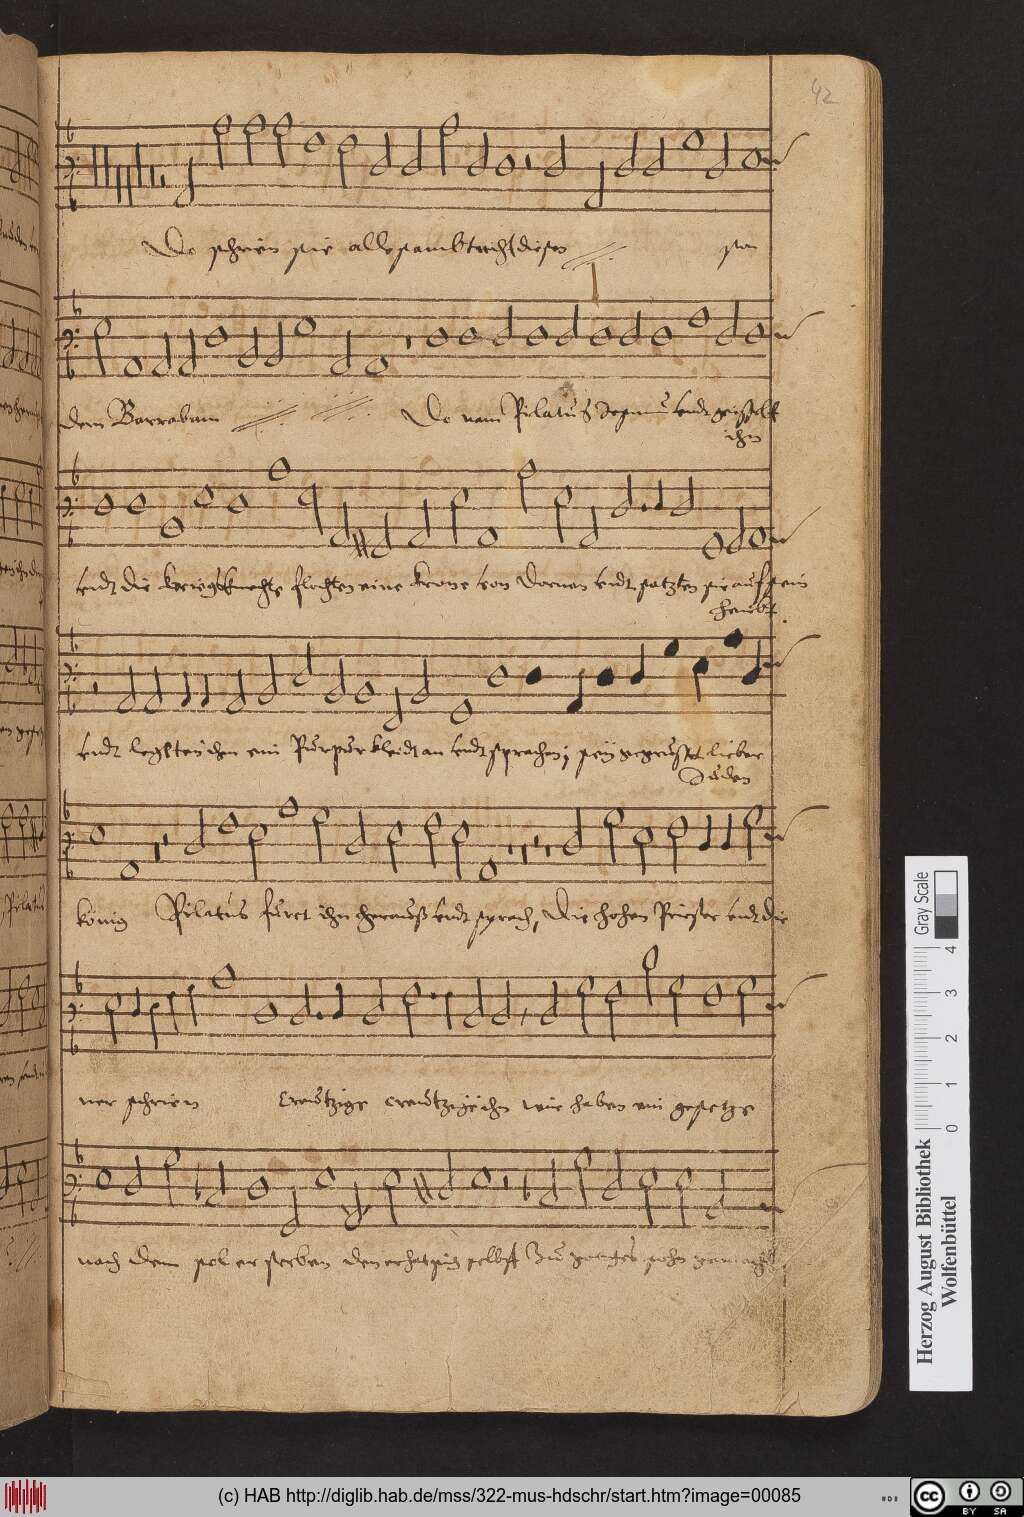 42
Do schrien sie alle sambt nicht diesen son
dem Barrabam Do nam Pilatus Jesum undt geisselt
ihn
undt die Kriegsknechte flochten eine krone von Dornen undt satzten sie auf sein
heubt
undt legten ihm ein Purpur kleidt an undt sprachen, sey gegrusset lieber
Juden
könig Pilatus füret ihn herauß undt sprach, Die hohen Priester undt die
ner schrien Creutzige creutzige ihn wir haben ein gesetze
nach dem sol er sterben den er hat sich selbst zu gottes sohn gemacht
Herzog August Bibliothek
Wolfenbüttel
0 1 2 3 4
Gray Scale
(c) HAB http://diglib.hab.de/mss/322-mus-hdschr/start.htm?image=00085
cc
BY SA